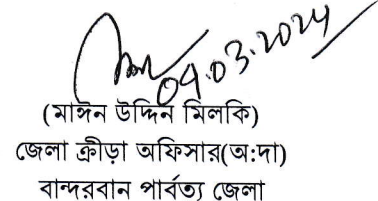 04.03.2024
(মাঈন উদ্দিন মিলকি)
জেলা ক্রীড়া অফিসার(অ:দা)
বান্দরবান পার্বত্য জেলা